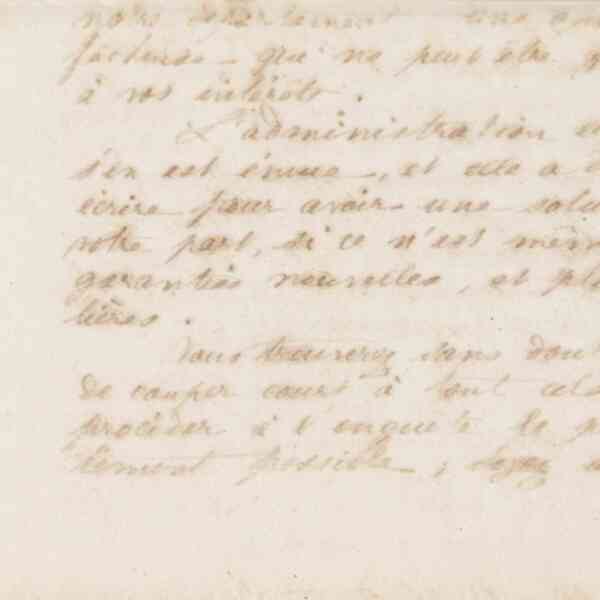 département une
que ne peut être
à vos intérêts.
L'administration
s'en est émue, et elle a
écrire pour avoir une
votre part, si ce n'est
garanties nouvelles, et
lières.
Vous trouverez sans
de couper court à tout cela
procéder à l'enquête le
possible,